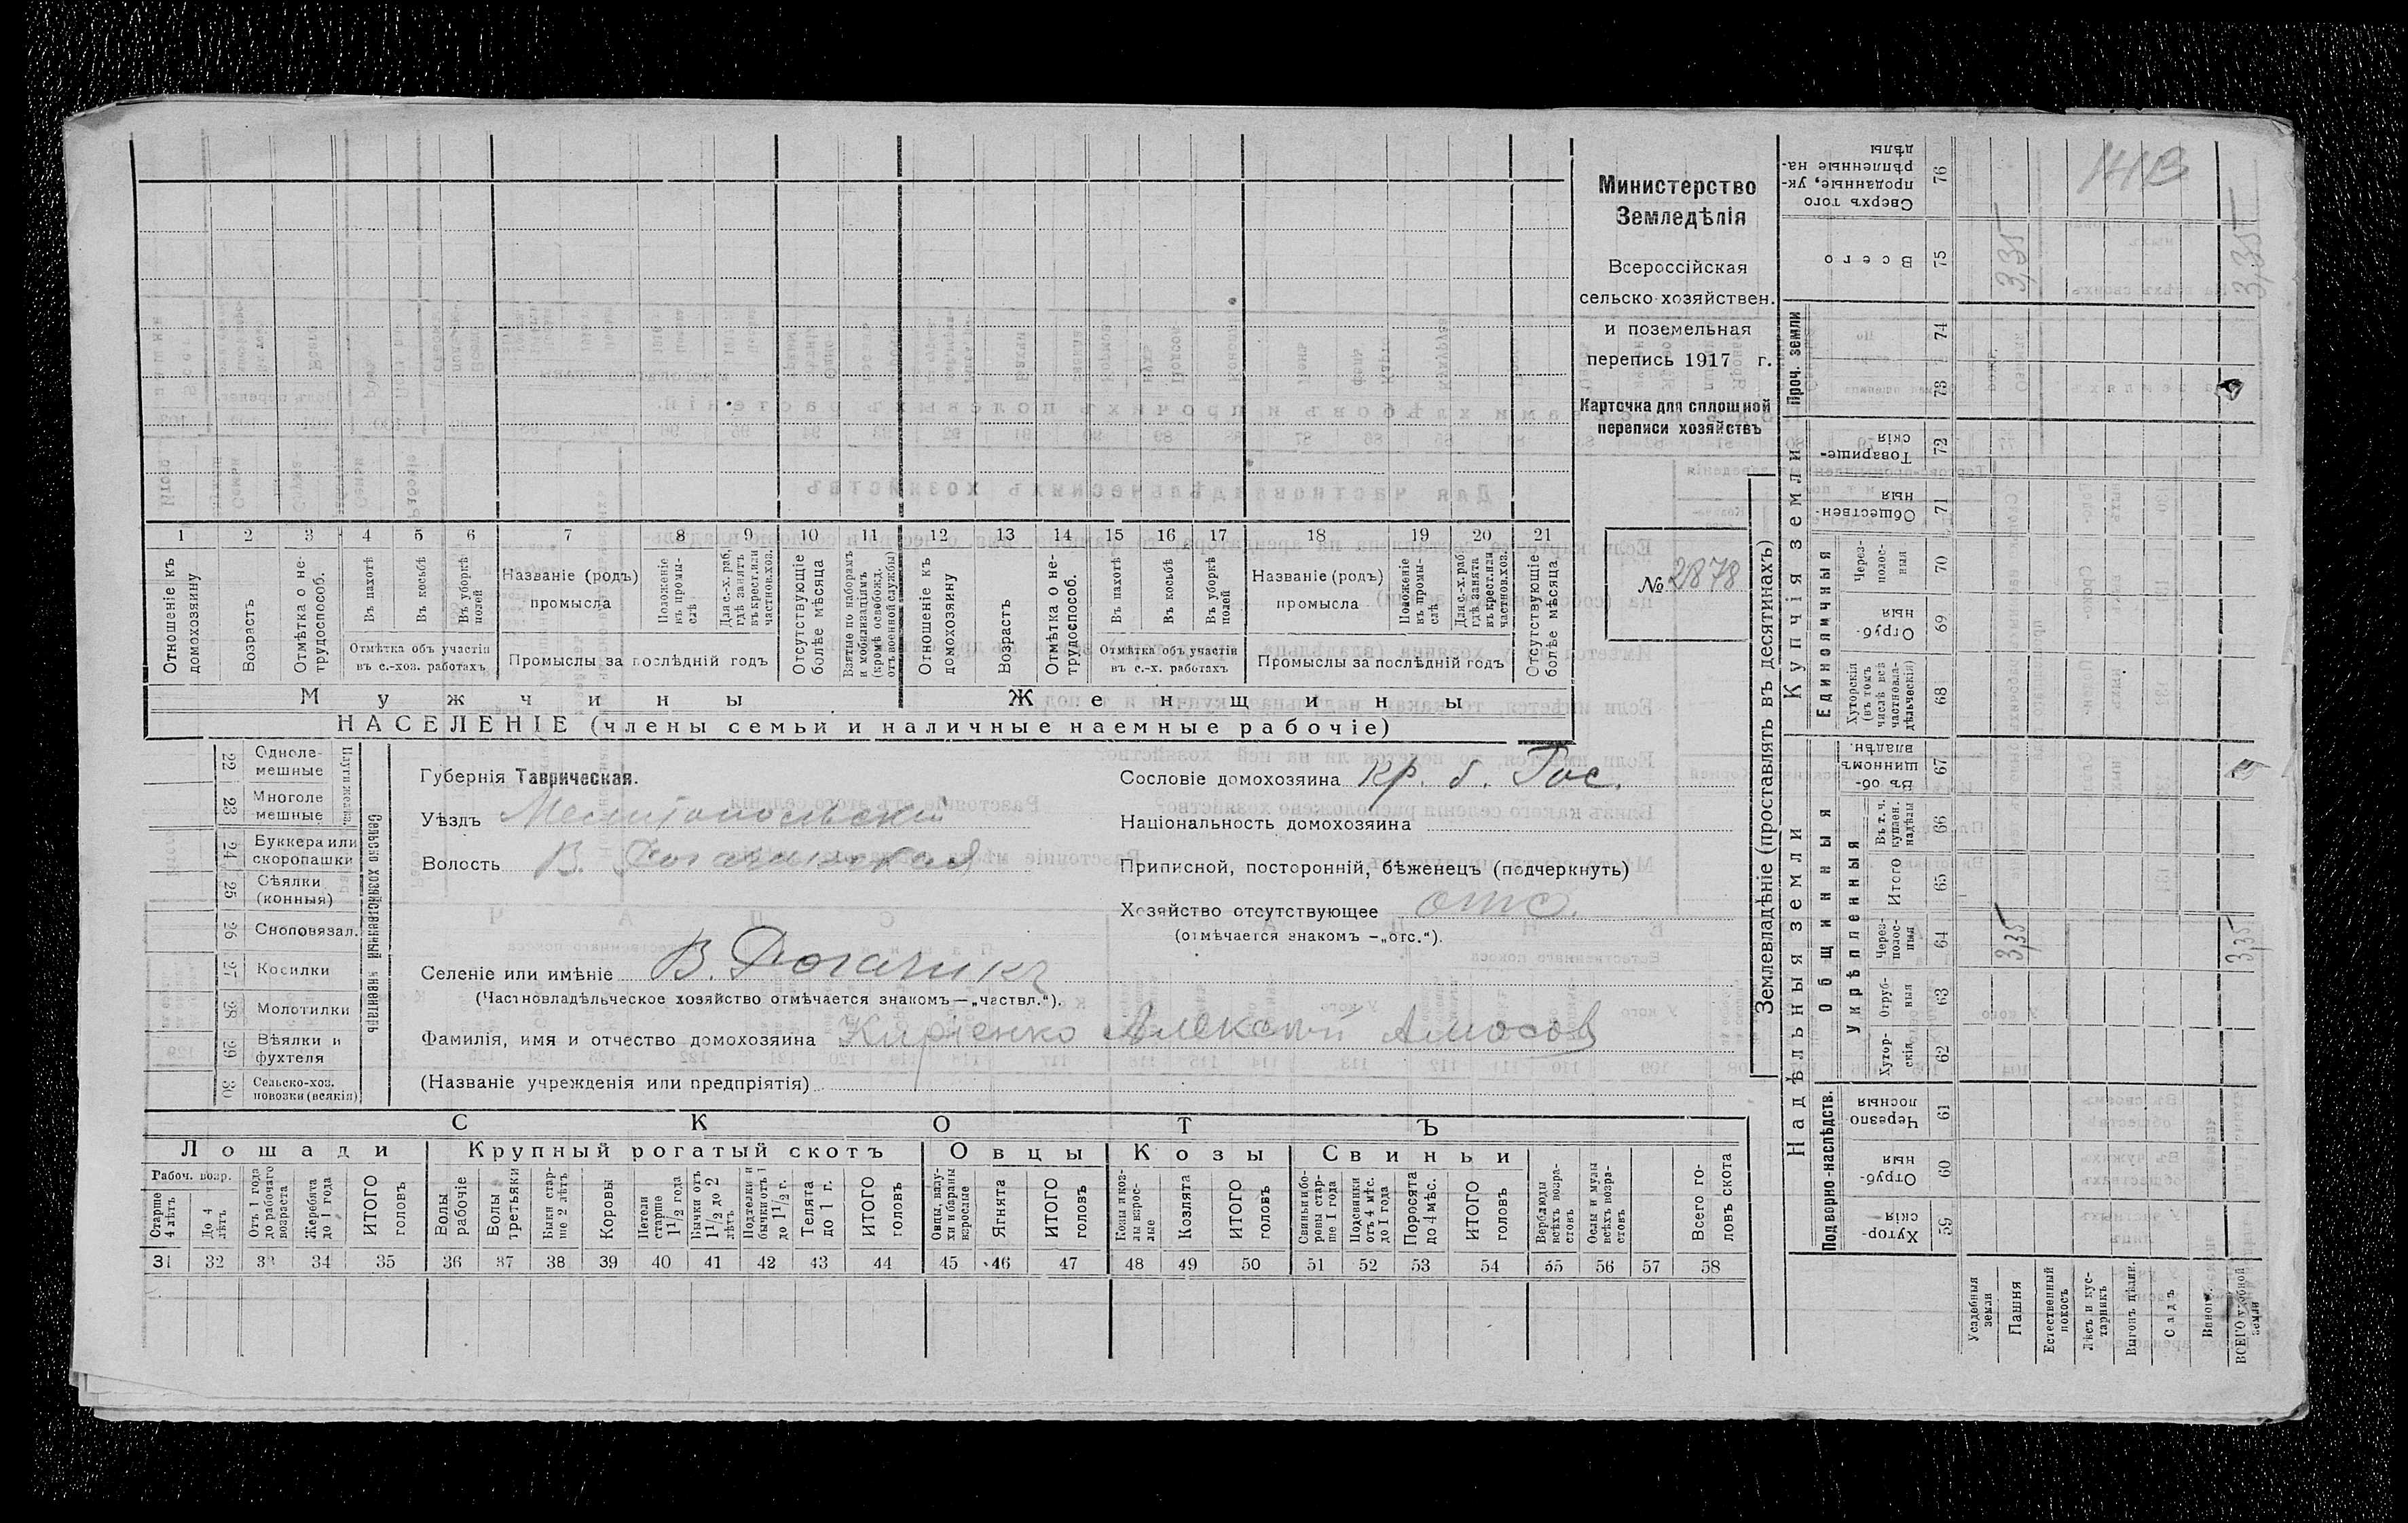 Министерство
Земледѣлія
Всероссійская
сельско-хозяйствен.
и поземельная
перепись 1917 г.
Карточка для сплошной
переписи хозяйствъ
№ 2878
1 2 3 4 5 6 7 8 9 10 11 12 13 14 15 16 17 18 19 20 21
Отношеніе къ домохозяину
Возрастъ
Отмѣтка о нетрудоспособ.
Въ пахотѣ
Въ косьбѣ
Въ уборкѣ полей
Отмѣтка объ участіи
въ с.-хоз. работахъ
Названіе (родъ)
промысла
Положеніе въ промыслѣ
Для с.-х. раб. гдѣ занятъ въ крест. или частнов. хоз.
Промыслы за послѣдній годъ
Отсутствующіе болѣе мѣсяца
Взятые по наборамъ и мобилизаціямъ (кромѣ освобожд. отъ военной службы)
Отношеніе къ домохозяину
Возрастъ
Отмѣтка о нетрудоспособ.
Въ пахотѣ
Въ косьбѣ
Въ уборкѣ полей
Отмѣтка объ участіи
въ с.-х. работахъ
Названіе (родъ)
промысла
Положеніе въ промыслѣ
Для с.-х. раб. гдѣ занята въ крест. или частнов. хоз.
Промыслы за послѣдній годъ
Отсутствующіе болѣе мѣсяца
Мужчины Женщины
НАСЕЛЕНІЕ (члены семьи и наличные наемные рабочіе)
Сельско хозяйственный инвентарь
22 Однолемешные
23 Многолемешные
24 Буккера или скоропашки
25 Сѣялки (конныя)
26 Сноповязал.
27 Косилки
28 Молотилки
29 Вѣялки и фухтеля
30 Сельско-хоз. повозки (всякія)
Губернія Таврическая.
Уѣздъ Мелитопольскій
Волость В. Рогачикская
Селеніе или имѣніе В. Рогачикъ
(Частновладѣльческое хозяйство отмѣчается знакомъ—„частвл.“).
Фамилія, имя и отчество домохозяина Киріенко Алексѣй Амосов
(Названіе учрежденія или предпріятія)
Сословіе домохозяина Кр. б. Гос.
Національность домохозяина
Приписной, посторонній, бѣженецъ (подчеркнуть)
Хозяйство отсутствующее отс.
(отмѣчается знакомъ —„отс.“).
СКОТЪ
Лошади Крупный рогатый скотъ Овцы Козы Свиньи
Рабоч. возр.
Старше 4 лѣтъ
До 4 лѣтъ
Отъ 1 года до рабочаго возраста
Жеребята до 1 года
ИТОГО головъ
Волы рабочіе
Волы третьяки
Быки старше 2 лѣтъ
Коровы
Нетели старше 1 1/2 года
Бычки отъ 1 1/2 до 2 лѣтъ
Подтелки и бычки отъ 1 до 1 1/2 г.
Телята до 1 г.
ИТОГО головъ
Овцы, валухи и бараны взрослые
Ягнята
ИТОГО головъ
Козы и козлы взрослые
Козлята
ИТОГО головъ
Свиньи и боровы старше 1 года
Подсвинки отъ 4 мѣс. до 1 года
Поросята до 4 мѣс.
ИТОГО головъ
Верблюды всѣхъ возрастовъ
Ослы и мулы всѣхъ возрастовъ
Всего головъ скота
31 32 33 34 35 36 37 38 39 40 41 42 43 44 45 46 47 48 49 50 51 52 53 54 55 56 57 58
Землевладѣніе (проставлять въ десятинахъ)
Надѣльныя земли
Купчія земли
Проч. земли
Подворно-наслѣдств.
Общинныя
Укрѣпленныя
Единоличныя
Сверхъ того проданные, укрѣпленные надѣлы 76
Всего 75 3,35 3,35
74
73
Товарищескія 72
Общественныя 71
Черезполосныя 70
Отрубныя 69
Хуторскія (въ томъ числѣ всѣ частновладѣльческія) 68
Въ общинномъ владѣн. 67
Въ т. ч. куплен. надѣлы 66
Итого 65
Черезполосныя 64 3,35 3,35
Отрубныя 63
Хуторскія 62
Черезполосныя 61
Отрубныя 60
Хуторскія 59
Усадебныя земли
Пашня
Естественный покосъ
Лѣсъ и кустарникъ
Выгонъ цѣлин.
Садъ
Виногр.
ВСЕГО удобной земли